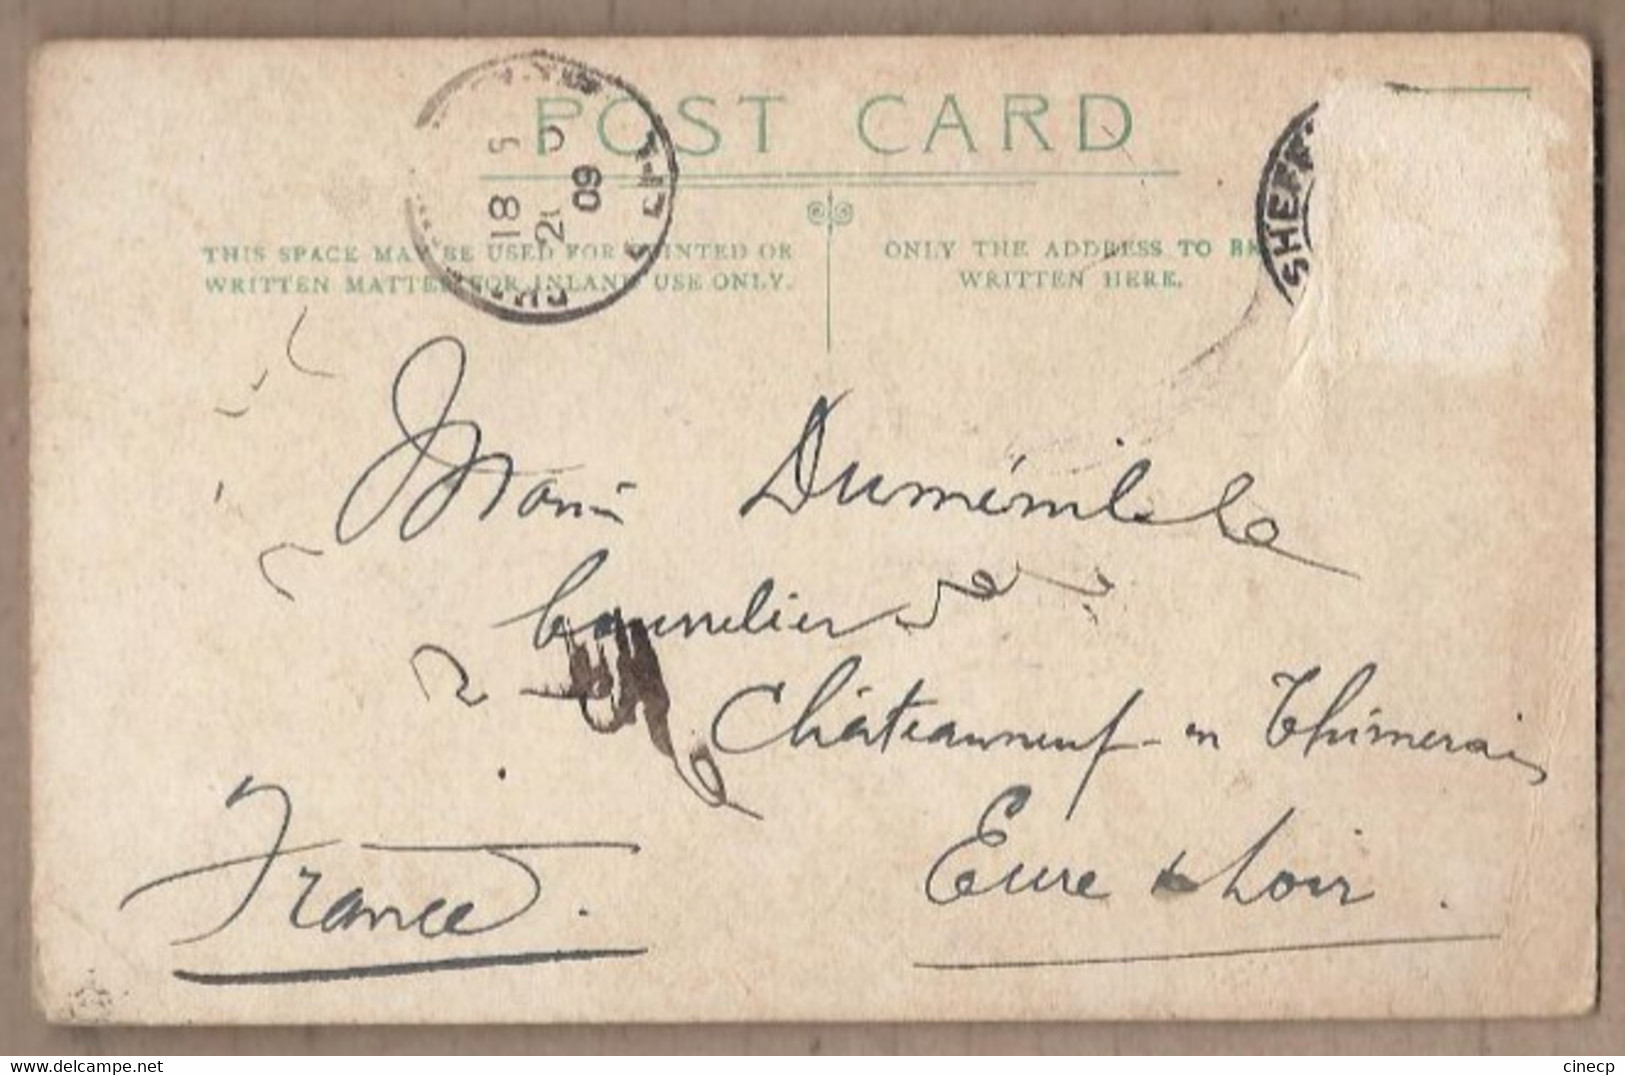 POST CARD
THIS SPACE MAY BE USED FOR PRINTED OR
WRITTEN MATTER FOR INLAND USE ONLY.
ONLY THE ADDRESS TO BE
WRITTEN HERE.
18
09
SHEF
Duménil
Châteauneuf-en Thimerais
Eure & Loir.
France.
https://www.delcampe.net
cinecp